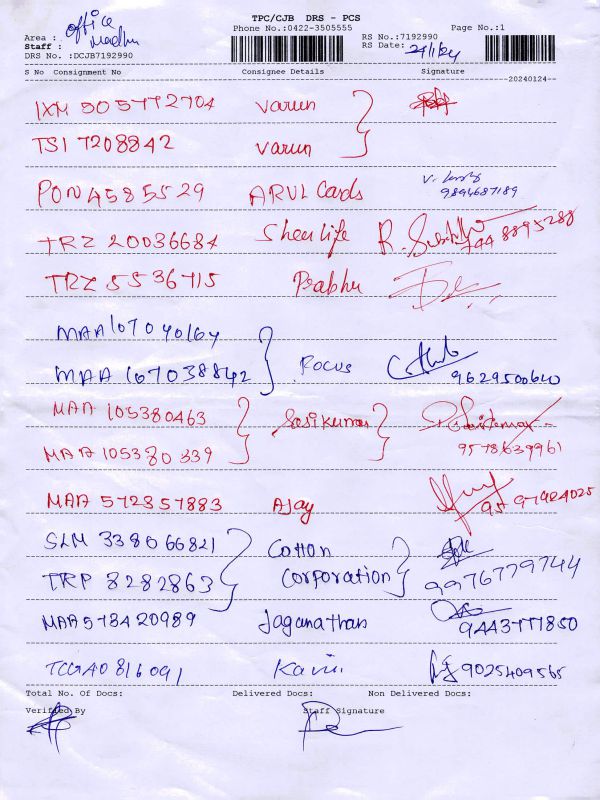 TPC/CJB DRS - PCS
Phone No.:0422-3505555 RS No.:7192990 Page No.:1
Area : office
Staff : madhu RS Date: 24/1/24
DRS No. :DCJB7192990
S No Consignment No Consignee Details Signature
20240124
IXM 505772704 Varun
TSI 7208842 Varun
PON 4585529 ARUL Cards 9894687189
TRZ 20036684 Sheen life
TRZ 5536715 Prabhu
MAA 107040164
MAA 107038842 Focus 9629500640
MAA 105380463 Sasikumar
MAA 105380339 9578639961
MAA 572357883 Ajay
SLM 338066821 Cotton
TRP 8282863 Corporation 9976779744
MAA 578420989 Jaganathan 9443777850
Kavi. 9025409565
Total No. Of Docs: Delivered Docs: Non Delivered Docs:
Verified By Staff Signature